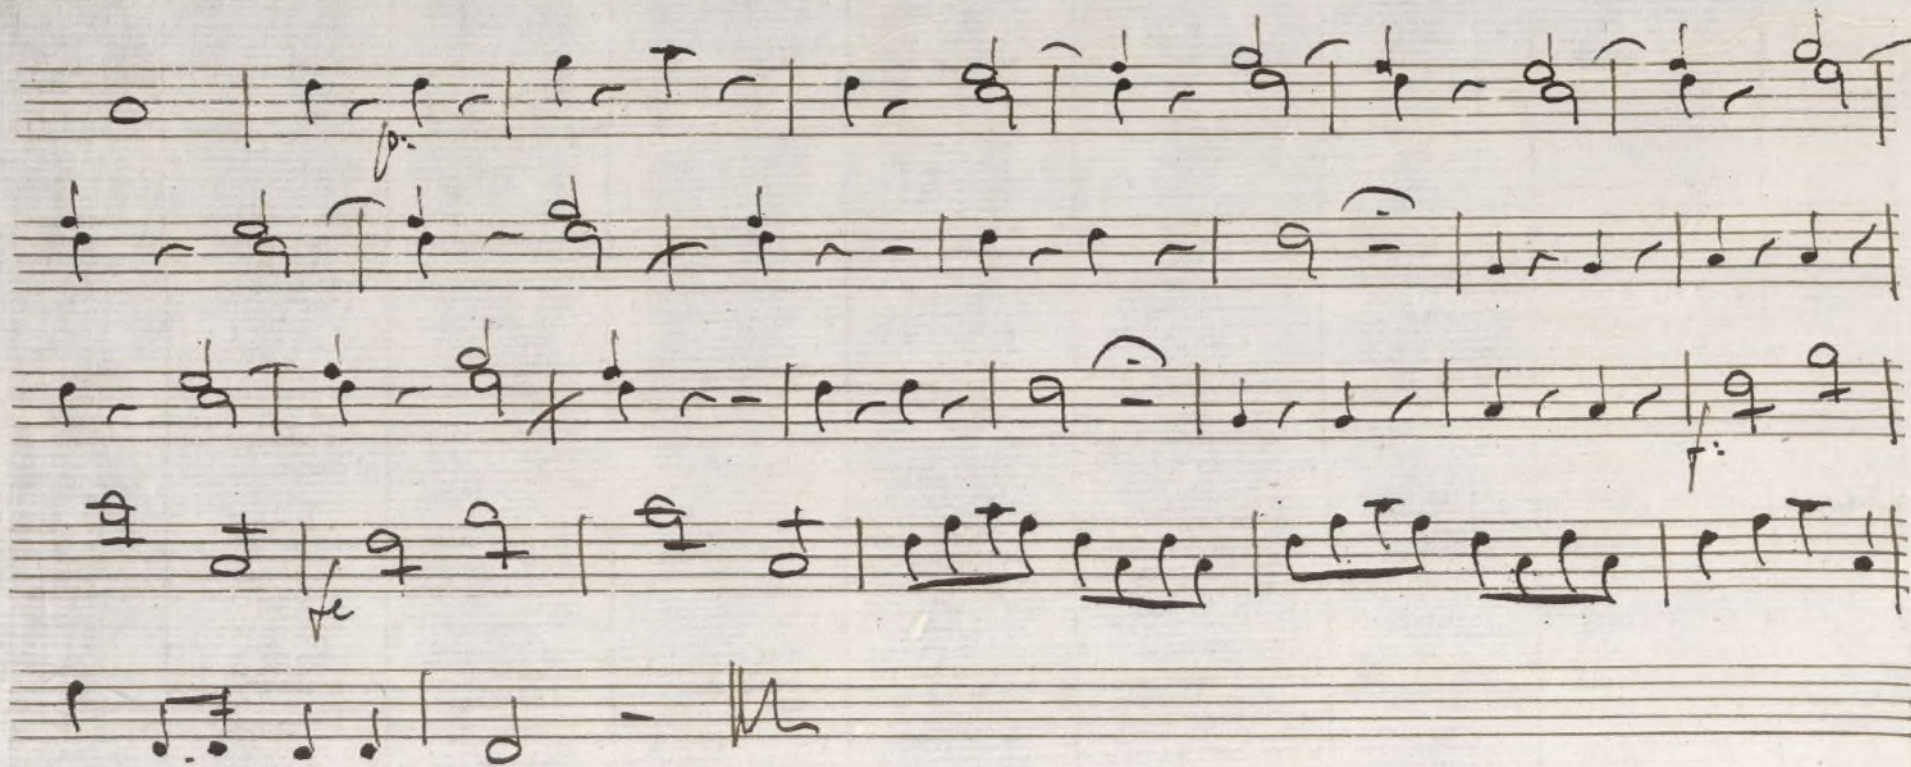 p:
f:
fe